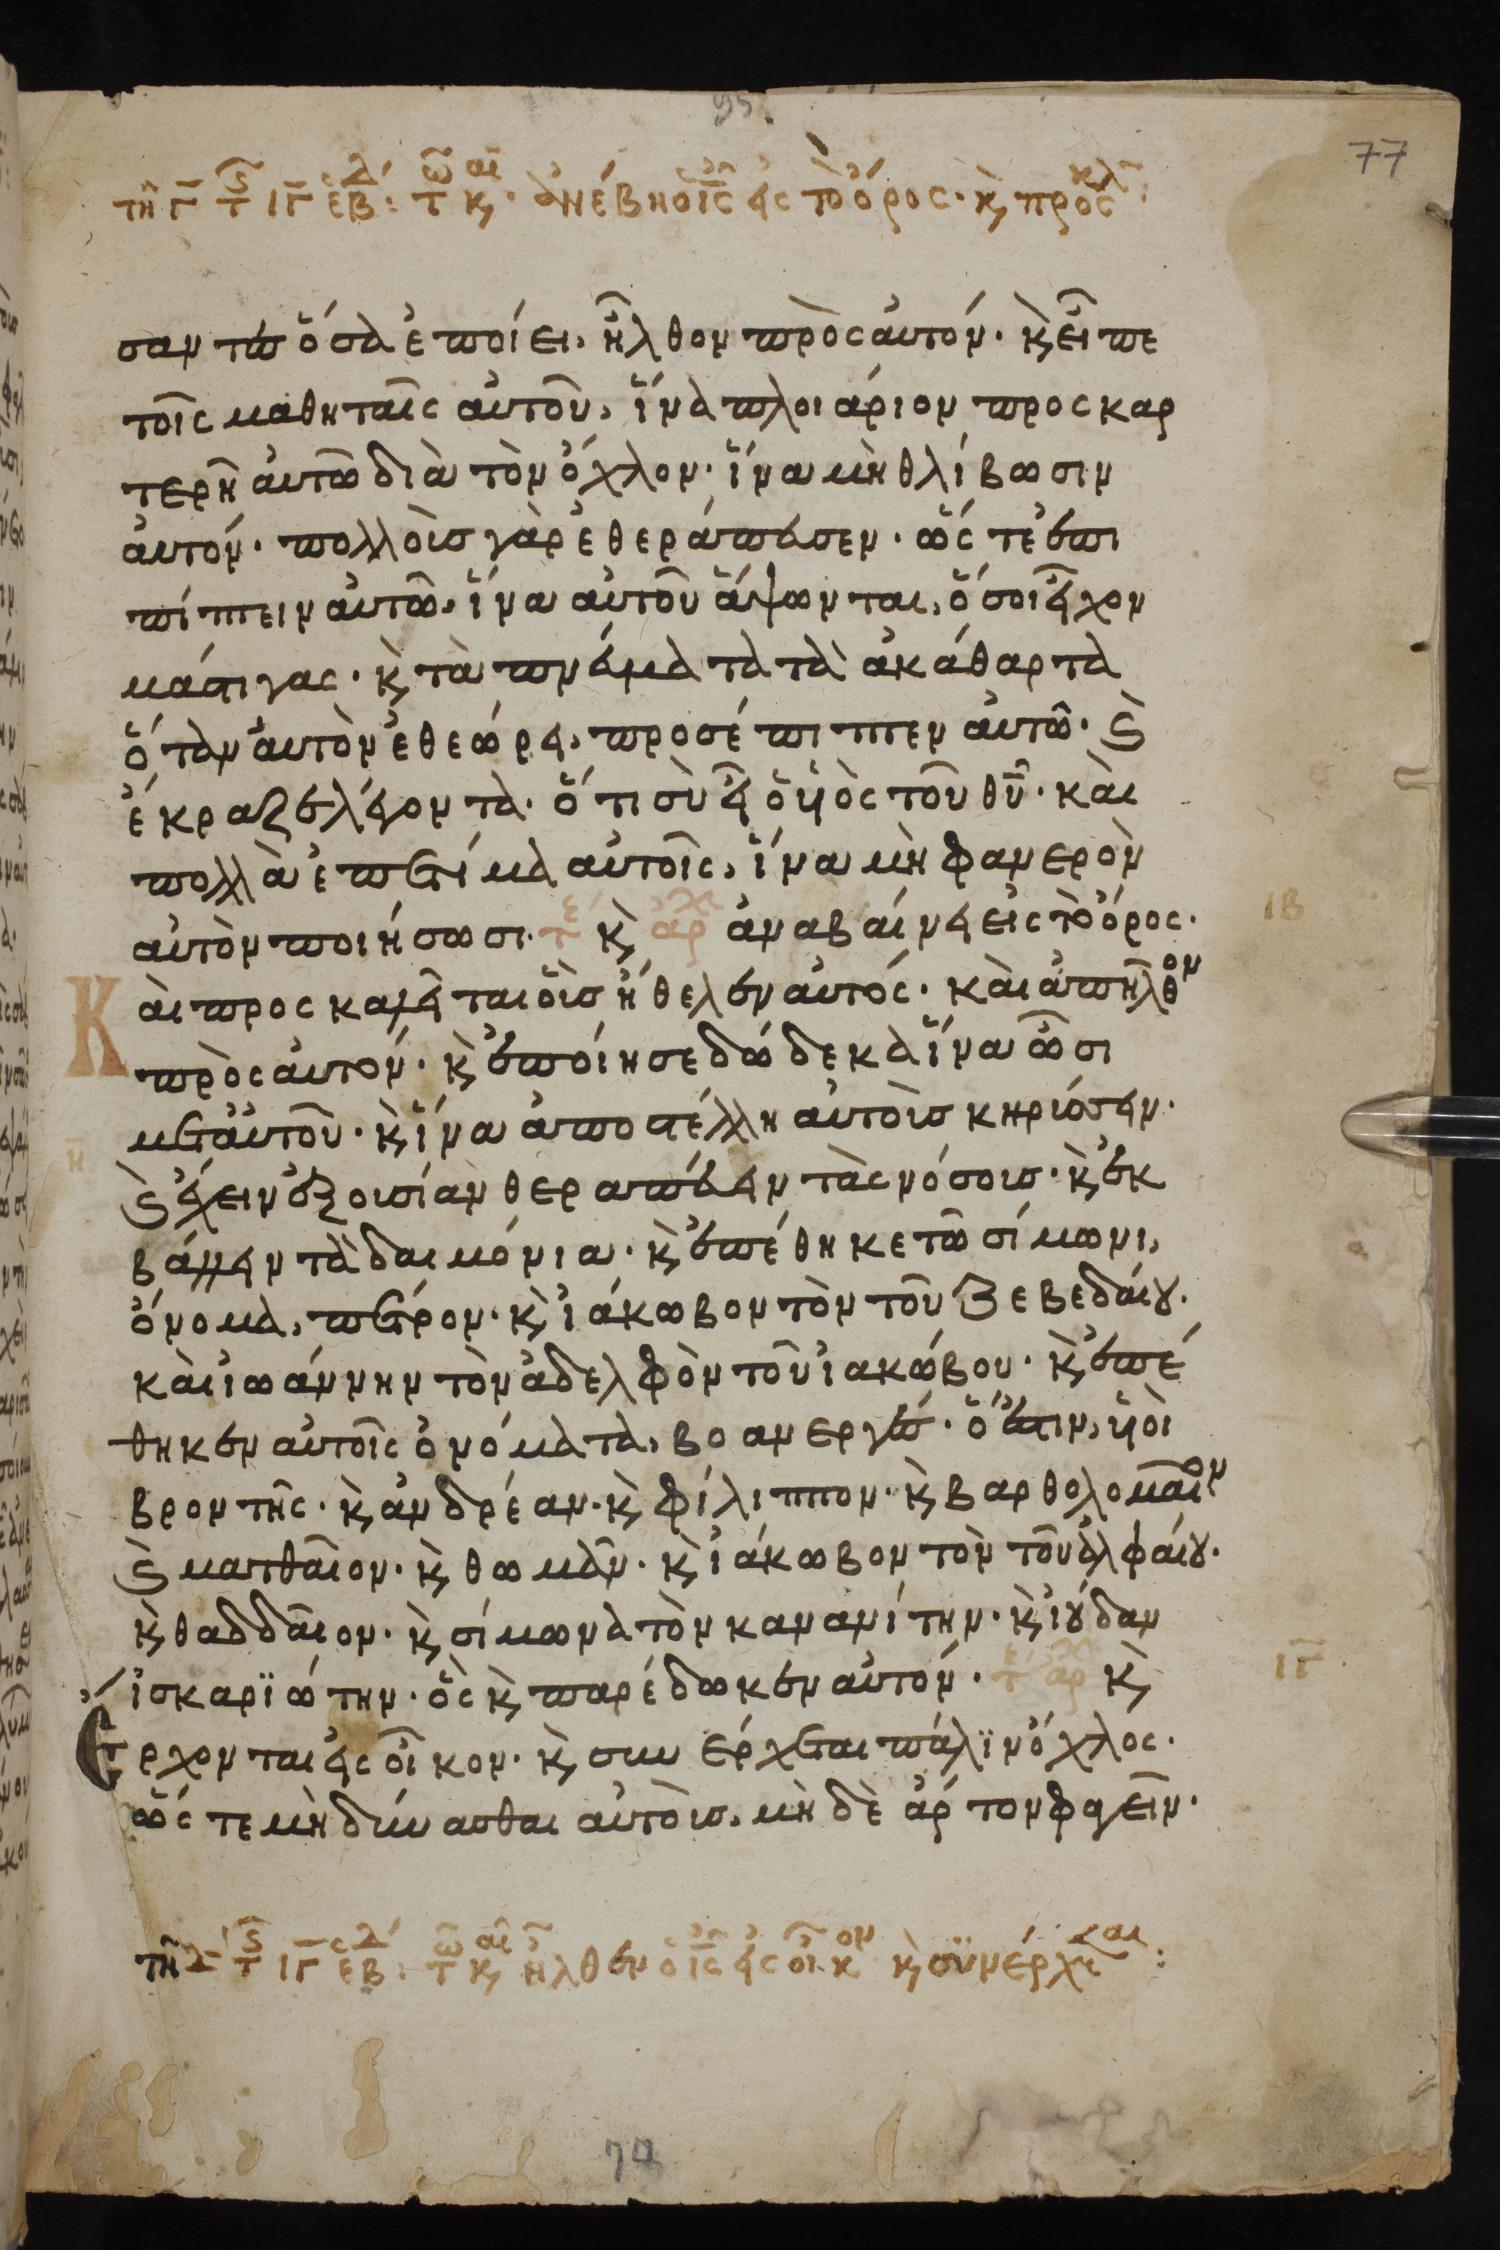 95.
77
τῆ γ̅ τ ς ιγ̅ ἑβδ: τω κ αι. ἀνέβη ὁ ι̅ς̅ εἰς τὸ ὄρος. κ̀ προσκλ:
σαν τὼ ὅσα ἐποίει, ἦλθον πρὸς αὐτόν. κ̀ εἶπε
τοῖς μαθηταῖς αὐτοῦ, ἵνα πλοιάριον προσκαρ
τερῆ αὐτῶ διὰ τὸν ὄχλον. ἵνα μὴ θλίβωσιν
αὐτόν. πολλοὺσ γὰρ ἐθεράπευσεν. ὥς τε ἐπι
πίπτειν αὐτῶ, ἵνα αὐτοῦ ἅψωνται, ὅσοι εἶχον
μάστιγας. κ̀ τὰ πνεύματα τὰ ἀκάθαρτα
ὅταν αὐτὸν ἐθεώρει, προσέπιπτεν αὐτῶ. κ̀
ἔκραζε λέγοντα. ὅτι σὺ εἶ ὁ υἱὸς τοῦ θ̅υ̅. καὶ
πολλὰ ἐπετίμα αὐτοῖς, ἵνα μὴ φανερὸν
αὐτὸν ποιήσωσι. τε κ̀ ἀρχ ἀναβαίνει εἰς τὸ ὄρος.
ιβ
Καὶ προσκαλεῖται οὓσ ἤθελεν αὐτός. καὶ ἀπῆλθον
πρὸς αὐτόν. κ̀ ἐποίησε δώδεκα ἵνα ὦσι
μετ' αὐτοῦ. κ̀ ἵνα ἀποστέλλη αὐτοὺσ κηρύσσειν.
η
κ̀ ἔχειν ἐξουσίαν θεραπεύειν τὰς νόσουσ. κ̀ ἐκ
βάλλειν τὰ δαιμόνια. κ̀ ἐπέθηκε τῶ σίμωνι,
ὄνομα, πέτρον. κ̀ ἰάκωβον τὸν τοῦ ζεβεδαίου.
καὶ ἰωάννην τὸν ἀδελφὸν τοῦ ἰακώβου. κ̀ ἐπέ
θηκεν αὐτοῖς ὀνόματα, βοανεργὲς. ὅ ἐστιν, υἱοὶ
βροντῆς. κ̀ ἀνδρέαν. κ̀ φίλιππον. κ̀ βαρθολομαῖον
κ̀ ματθαῖον. κ̀ θωμᾶν. κ̀ ἰάκωβον τὸν τοῦ ἀλφαίου.
κ̀ θαδδαῖον. κ̀ σίμωνα τὸν κανανίτην. κ̀ ἰούδαν
ἰσκαρϊώτην. ὃς κ̀ παρέδωκεν αὐτόν. τε ἀρχ κ̀
ιγ̅
Ἔρχονται εἰς οἶκον. κ̀ συνέρχεται πάλϊν ὄχλος.
ὥς τε μὴ δύνασθαι αὐτοὺσ, μὴ δὲ ἄρτον φαγεῖν.
τῆ δ̅ τ ς ιγ̅ ἑβδ: τω κ αι ἦλθεν ὁ ι̅ς̅ εἰς οἶκον κ̀ σϋνέρχεται: